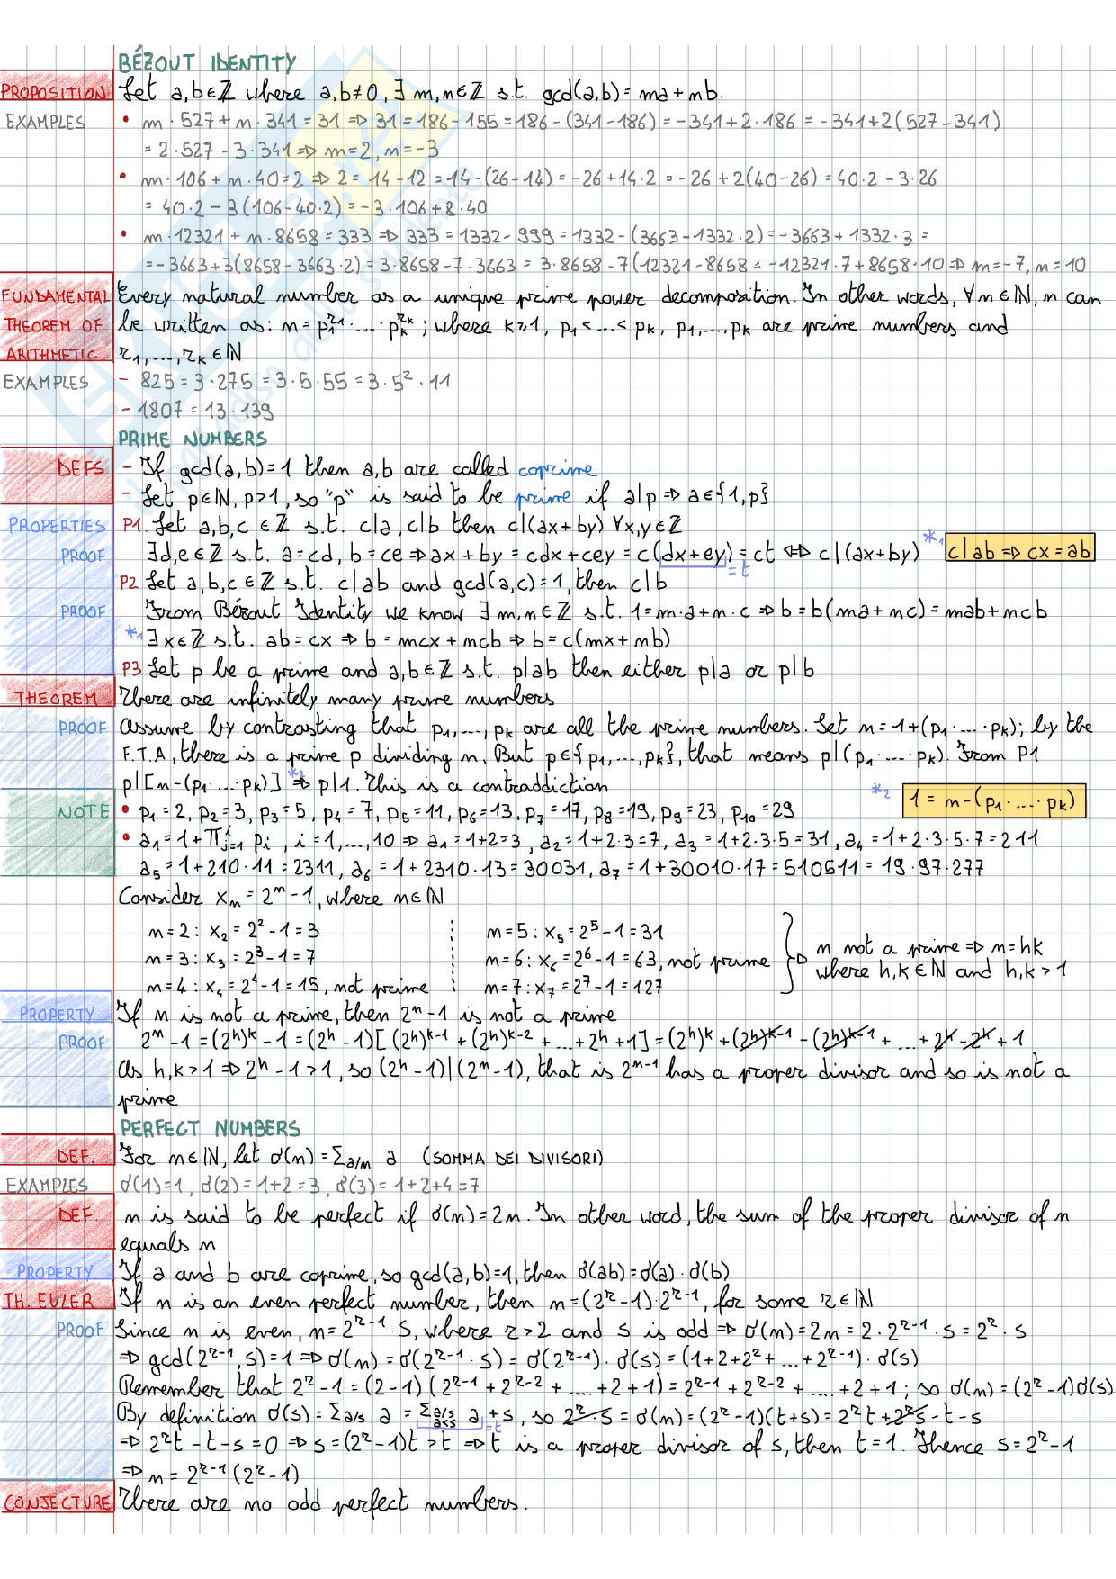 BÉZOUT IDENTITY
PROPOSITION Let a,b∈ℤ where a,b≠0, ∃ m,n∈ℤ s.t. gcd(a,b)= ma+nb
EXAMPLES • m·527 + n·341 = 31 ⇒ 31 = 186-155 = 186-(341-186) = -341+2·186 = -341+2(527-341)
= 2·527 - 3·341 ⇒ m=2, n=-3
• m·106 + n·40=2 ⇒ 2 = 14-12 = 14-(26-14) = -26+14·2 = -26+2(40-26) = 40·2-3·26
= 40·2-3(106-40·2) = -3·106+8·40
• m·12321 + n·8658 = 333 ⇒ 333 = 1332-999 = 1332-(3663-1332·2) = -3663+1332·3 =
= -3663+3(8658-3663·2) = 3·8658-7·3663 = 3·8658-7(12321-8658 = -12321·7+8658·10 ⇒ m=-7, n=10
FUNDAMENTAL Every natural number as a unique prime power decomposition. In other words, ∀n∈ℕ, n can
THEOREM OF be written as: n = p₁^r₁ · ... · pₖ^rₖ ; where k≥1, p₁<...<pₖ, p₁,...,pₖ are prime numbers and
ARITHMETIC r₁,...,rₖ∈ℕ
EXAMPLES - 825 = 3·275 = 3·5·55 = 3·5²·11
- 1807 = 13·139
PRIME NUMBERS
DEFS - If gcd(a,b)=1 then a,b are called coprime
- Let p∈ℕ, p>1, so "p" is said to be prime if a|p ⇒ a∈{1,p}
PROPERTIES P1. Let a,b,c ∈ℤ s.t. c|a, c|b then c|(ax+by) ∀x,y∈ℤ
PROOF ∃d,e∈ℤ s.t. a=cd, b=ce ⇒ ax+by = cdx+cey = c(dx+ey) = ct ⇔ c|(ax+by) *1 c|ab ⇒ cx=ab
=t
P2 Let a,b,c∈ℤ s.t. c|ab and gcd(a,c)=1, then c|b
PROOF From Bézout Identity we know ∃ m,n∈ℤ s.t. 1=m·a+n·c ⇒ b=b(ma+nc) = mab+ncb
*1 ∃x∈ℤ s.t. ab=cx ⇒ b = mcx+ncb ⇒ b = c(mx+nb)
P3 Let p be a prime and a,b∈ℤ s.t. p|ab then either p|a or p|b
THEOREM There are infinitely many prime numbers
PROOF Assume by contrasting that p₁,...,pₖ are all the prime numbers. Let n=1+(p₁·...·pₖ); by the
F.T.A, there is a prime p dividing n. But p∈{p₁,...,pₖ}, that means p|(p₁·...·pₖ). From P1
p|[n-(p₁·...·pₖ)] *2 ⇒ p|1. This is a contraddiction
*2 1 = n-(p₁·...·pₖ)
NOTE • p₁=2, p₂=3, p₃=5, p₄=7, p₅=11, p₆=13, p₇=17, p₈=19, p₉=23, p₁₀=29
• a₁=1+∏ⁱⱼ₌₁ pᵢ, i=1,...,10 ⇒ a₁=1+2=3, a₂=1+2·3=7, a₃=1+2·3·5=31, a₄=1+2·3·5·7=211
a₅=1+210·11=2311, a₆=1+2310·13=30031, a₇=1+30010·17=510511=19·97·277
Consider xₙ=2ⁿ-1, where n∈ℕ
n=2: x₂=2²-1=3 n=5: x₅=2⁵-1=31
n=3: x₃=2³-1=7 n=6: x₆=2⁶-1=63, not prime
n=4: x₄=2⁴-1=15, not prime n=7: x₇=2⁷-1=127
n not a prime ⇒ n=hk
where h,k∈ℕ and h,k>1
PROPERTY If n is not a prime, then 2ⁿ-1 is not a prime
PROOF 2ⁿ-1=(2ʰ)ᵏ-1=(2ʰ-1)[(2ʰ)ᵏ⁻¹+(2ʰ)ᵏ⁻²+...+2ʰ+1]=(2ʰ)ᵏ+(2ʰ)ᵏ⁻¹-(2ʰ)ᵏ⁻¹+...+2ʰ-2ʰ+1
As h,k>1 ⇒ 2ʰ-1>1, so (2ʰ-1)|(2ⁿ-1), that is 2ⁿ⁻¹ has a proper divisor and so is not a
prime
PERFECT NUMBERS
DEF. For n∈ℕ, let σ(n)=Σₐ/ₙ a (SOMMA DEI DIVISORI)
EXAMPLES σ(1)=1, σ(2)=1+2=3, σ(3)=1+2+4=7
DEF. n is said to be perfect if σ(n)=2n. In other word, the sum of the proper divisor of n
equals n
PROPERTY If a and b are coprime, so gcd(a,b)=1, then σ(ab)=σ(a)·σ(b)
TH. EULER If n is an even perfect number, then n=(2ʳ-1)·2ʳ⁻¹, for some r∈ℕ
PROOF Since n is even, n=2ʳ⁻¹ s, where r>2 and s is odd ⇒ σ(n)=2n=2·2ʳ⁻¹·s=2ʳ·s
⇒ gcd(2ʳ⁻¹,s)=1 ⇒ σ(n)=σ(2ʳ⁻¹·s)=σ(2ʳ⁻¹)·σ(s)=(1+2+2²+...+2ʳ⁻¹)·σ(s)
Remember that 2ʳ-1=(2-1)(2ʳ⁻¹+2ʳ⁻²+...+2+1)=2ʳ⁻¹+2ʳ⁻²+...+2+1; so σ(n)=(2ʳ-1)σ(s)
By definition σ(s)=Σₐ/ₛ a = Σ a/s a≤s a +s, so 2ʳ·s=σ(n)=(2ʳ-1)(t+s)=2ʳt+2ʳs-t-s
=t
⇒ 2ʳt-t-s=0 ⇒ s=(2ʳ-1)t>t ⇒ t is a proper divisor of s, then t=1. Thence s=2ʳ-1
⇒ n=2ʳ⁻¹(2ʳ-1)
CONJECTURE There are no odd perfect numbers.